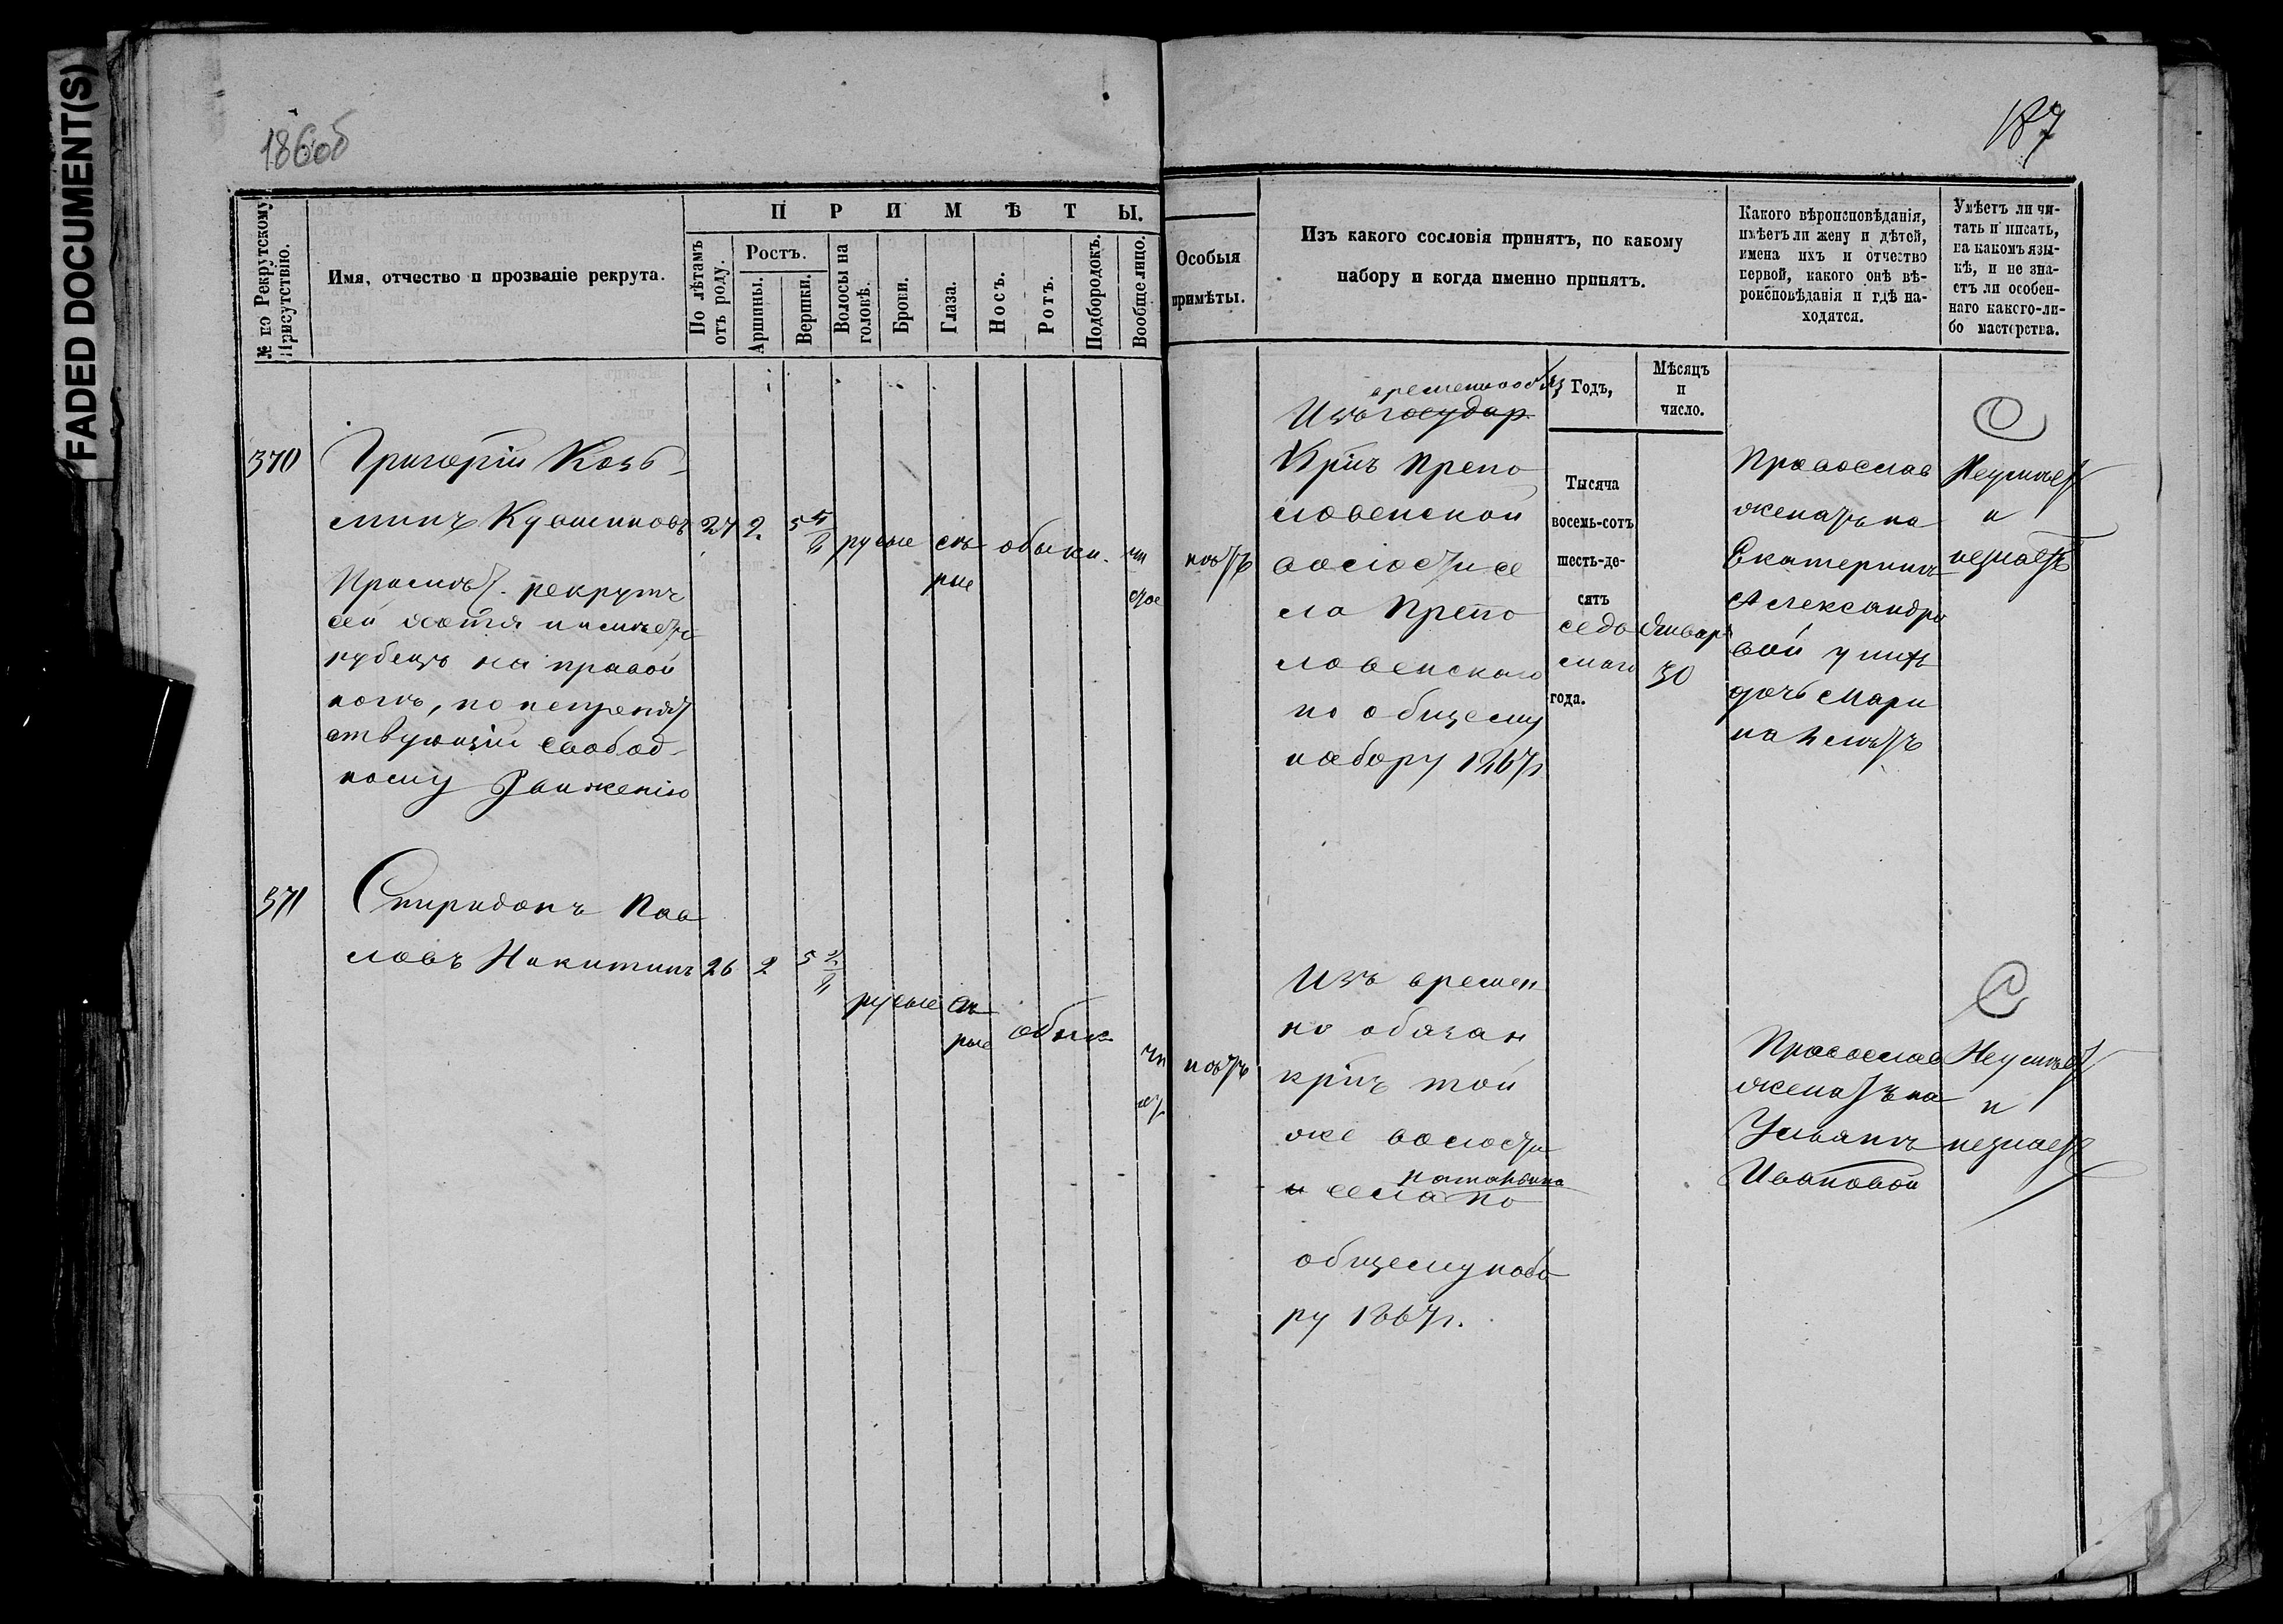 FADED DOCUMENT(S)
186об
187
№ по Рекрутскому Присутствію.
Имя, отчество и прозваніе рекрута.
ПРИМѢТЫ.
По лѣтамъ отъ роду.
Ростъ.
Аршины.
Вершки.
Волосы на головѣ.
Брови.
Глаза.
Носъ.
Ротъ.
Подбородокъ.
Вообще лицо.
Особыя
примѣты.
Изъ какого сословія принятъ, по какому
набору и когда именно принятъ.
Какого вѣроисповѣданія,
имѣетъ ли жену и дѣтей,
имена ихъ и отчество
первой, какого онѣ вѣ-
роисповѣданія и гдѣ на-
ходятся.
Умѣетъ ли чи-
тать и писать,
на какомъ язы-
кѣ, и не зна-
етъ ли особен-
наго какого-ли-
бо мастерства.
Годъ,
Мѣсяцъ
и
число.
370
Григорій Козь-
минъ Кувшиновъ 27 2 5 5/8 русые сѣ-
рые
обыкн.
чи
стое
рекрутъ
сей хотя и имѣетъ
рубецъ на правой
ногѣ, но непрепят
ствующій свобод-
ному движенію
нѣтъ
временнообяз
Изъ государ
Кр҃нъ Препо
ловенской
волости се
ла Препо
ловенскаго
по общему
набору 1867г
Тысяча
восемь-сотъ
шесть-де-
сятъ
седь
маго
года.
Январ
30
Православ
женатъ на
Екатеринѣ
Александро
вой у нихъ
дочь Мари
на
Неумѣетъ
и
незнаетъ
371
Спиридонъ Пав
ловъ Никитинъ 26 2 5 2/8
русые сѣ
рые
обык
чи
ст
нѣтъ
Изъ времен
но обязан
кр҃нъ той
же волости
и села по
общему набо
ру 1867г.
Православ
женатъ на
Ульянѣ
Ивановой
Неумѣетъ
и
незнаетъ